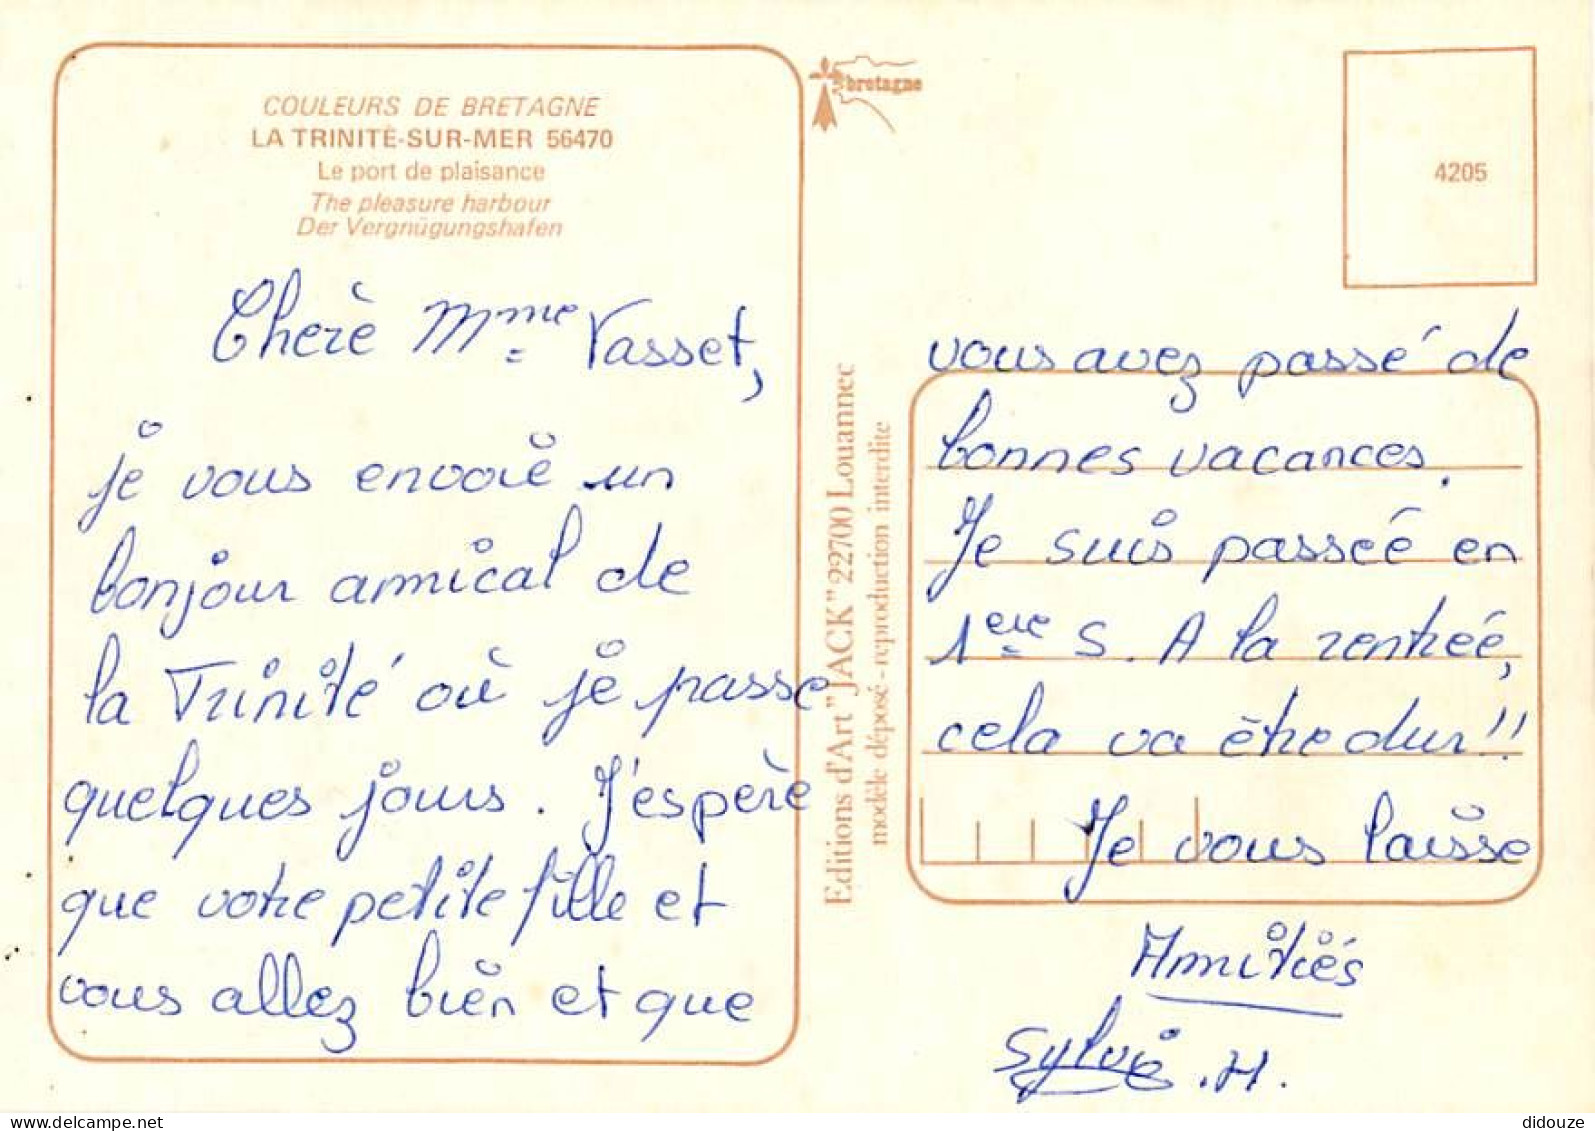 COULEURS DE BRETAGNE
LA TRINITÉ-SUR-MER 56470
Le port de plaisance
The pleasure harbour
Der Vergnügungshafen
Cherè Mme Vasset,
je vous envoie un
bonjour amical de
la Trinité où je passe
quelques jours. J'espère
que votre petite fille et
vous allez bien et que
Editions d'Art "JACK" 22700 Louannec
modèle déposé - reproduction interdite
bretagne
4205
vous avez passé de
bonnes vacances.
Je suis passée en
1ere S. A la rentrée,
cela va être dur!!
Je vous laisse
Amitiés
Sylvie .H.
www.delcampe.net
didouze